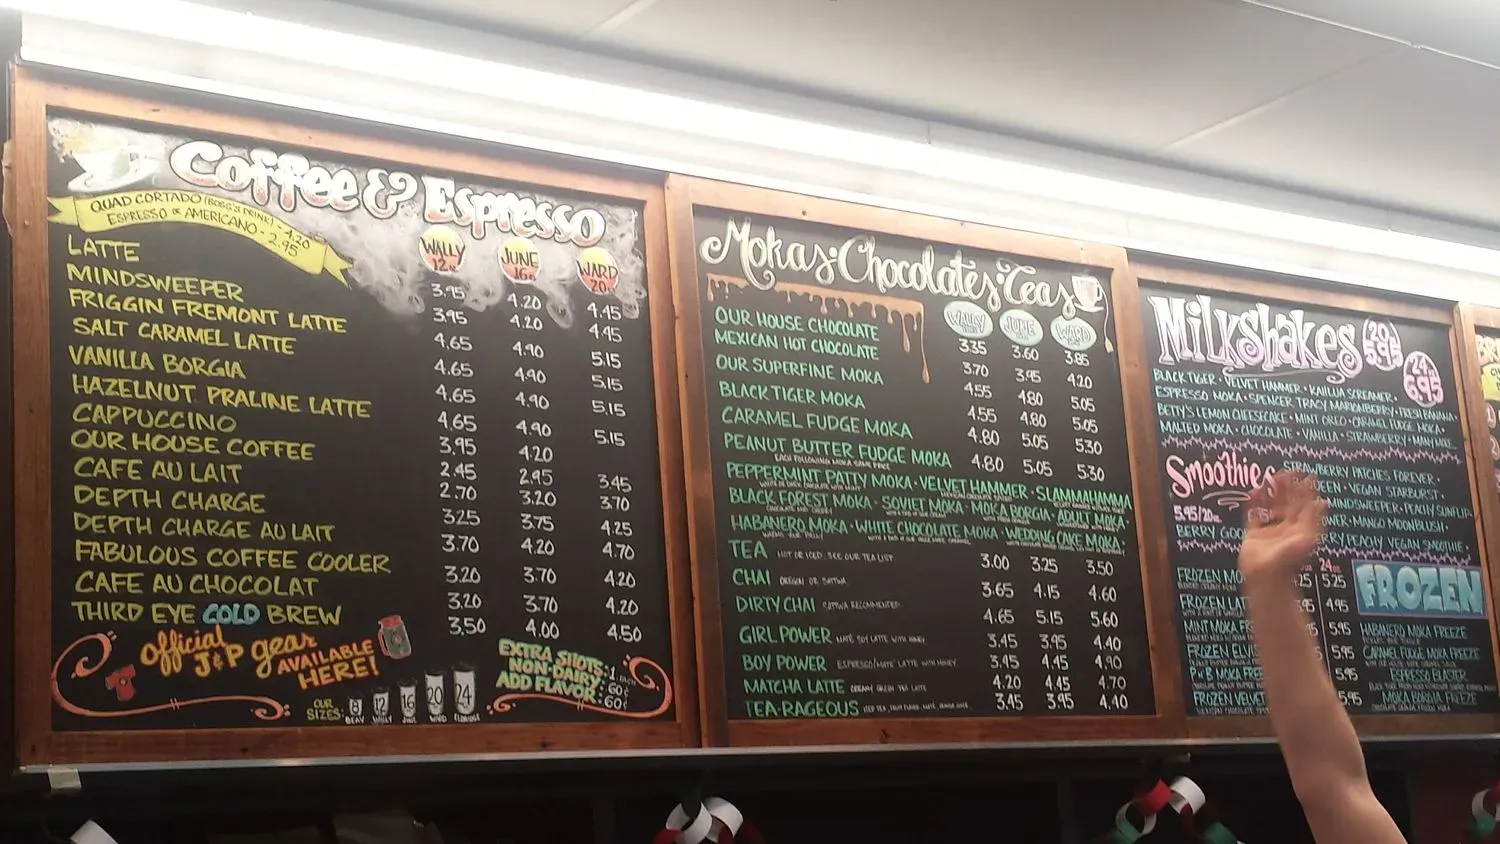 Coffee & Espresso
QUAD CORTADO (BOSS'S DRINK) - 4.20
ESPRESSO OR AMERICANO - 2.95
WALLY 12oz JUNE 16oz WARD 20
LATTE 3.95 4.20 4.45
MINDSWEEPER 3.95 4.20 4.45
FRIGGIN FREMONT LATTE 4.65 4.90 5.15
SALT CARAMEL LATTE 4.65 4.90 5.15
VANILLA BORGIA 4.65 4.90 5.15
HAZELNUT PRALINE LATTE 4.65 4.90 5.15
CAPPUCCINO 3.95 4.20
OUR HOUSE COFFEE 2.45 2.95 3.45
CAFE AU LAIT 2.70 3.20 3.70
DEPTH CHARGE 3.25 3.75 4.25
DEPTH CHARGE AU LAIT 3.70 4.20 4.70
FABULOUS COFFEE COOLER 3.20 3.70 4.20
CAFE AU CHOCOLAT 3.20 3.70 4.20
THIRD EYE COLD BREW 3.50 4.00 4.50
Official J&P gear
AVAILABLE HERE!
OUR SIZES: 8 12 16 20 24
BEAV WALLY JUNE WARD ELDRIDGE
EXTRA SHOTS - 1. EACH
NON-DAIRY - 60¢
ADD FLAVOR - 60¢
Mokas · Chocolates · Teas
WALLY JUNE WARD
OUR HOUSE CHOCOLATE 3.35 3.60 3.85
MEXICAN HOT CHOCOLATE 3.70 3.95 4.20
OUR SUPERFINE MOKA 4.55 4.80 5.05
BLACK TIGER MOKA 4.55 4.80 5.05
CARAMEL FUDGE MOKA 4.80 5.05 5.30
PEANUT BUTTER FUDGE MOKA 4.80 5.05 5.30
EACH FOLLOWING MOKA SAME PRICE
PEPPERMINT PATTY MOKA · VELVET HAMMER · SLAMMAHAMMA
BLACK FOREST MOKA · SOVIET MOKA · MOKA BORGIA · ADVENT MOKA ·
HABANERO MOKA · WHITE CHOCOLATE MOKA · WEDDING CAKE MOKA ·
TEA HOT OR ICED. SEE OUR TEA LIST 3.00 3.25 3.50
CHAI OREGON OR SATTWA 3.65 4.15 4.60
DIRTY CHAI SATTWA RECOMMENDED 4.65 5.15 5.60
GIRL POWER MATÉ SOY LATTE WITH HONEY 3.45 3.95 4.40
BOY POWER ESPRESSO/MATÉ LATTE WITH HONEY 3.45 4.45 4.90
MATCHA LATTE CREAMY GREEN TEA LATTE 4.20 4.45 4.70
TEA-RAGEOUS 3.45 3.95 4.40
Milkshakes
20oz 5.95
24oz 6.95
BLACK TIGER · VELVET HAMMER · KAILUA SCREAMER ·
ESPRESSO MOKA · SPENCER TRACY MARIONBERRY · FRESH BANANA ·
BETTY'S LEMON CHEESECAKE · MINT OREO · CARAMEL FUDGE MOKA ·
MALTED MOKA · CHOCOLATE · VANILLA · STRAWBERRY · MANY MORE
Smoothies
5.95/20oz
STRAWBERRY PATCHES FOREVER ·
QUEEN · VEGAN STARBURST ·
MINDSWEEPER · PEACHY
MANGO MOONBLUSH ·
BERRY PEACHY VEGAN SMOOTHIE ·
24oz
FROZEN
FROZEN 5.25
FROZEN 4.95
MINT MOKA 5.95
FROZEN 5.95
P N' B MOKA 5.95
FROZEN 5.95
HABANERO MOKA FREEZE
CARAMEL FUDGE MOKA FREEZE
ESPRESSO BLASTER
MOKA BORGIA FREEZE